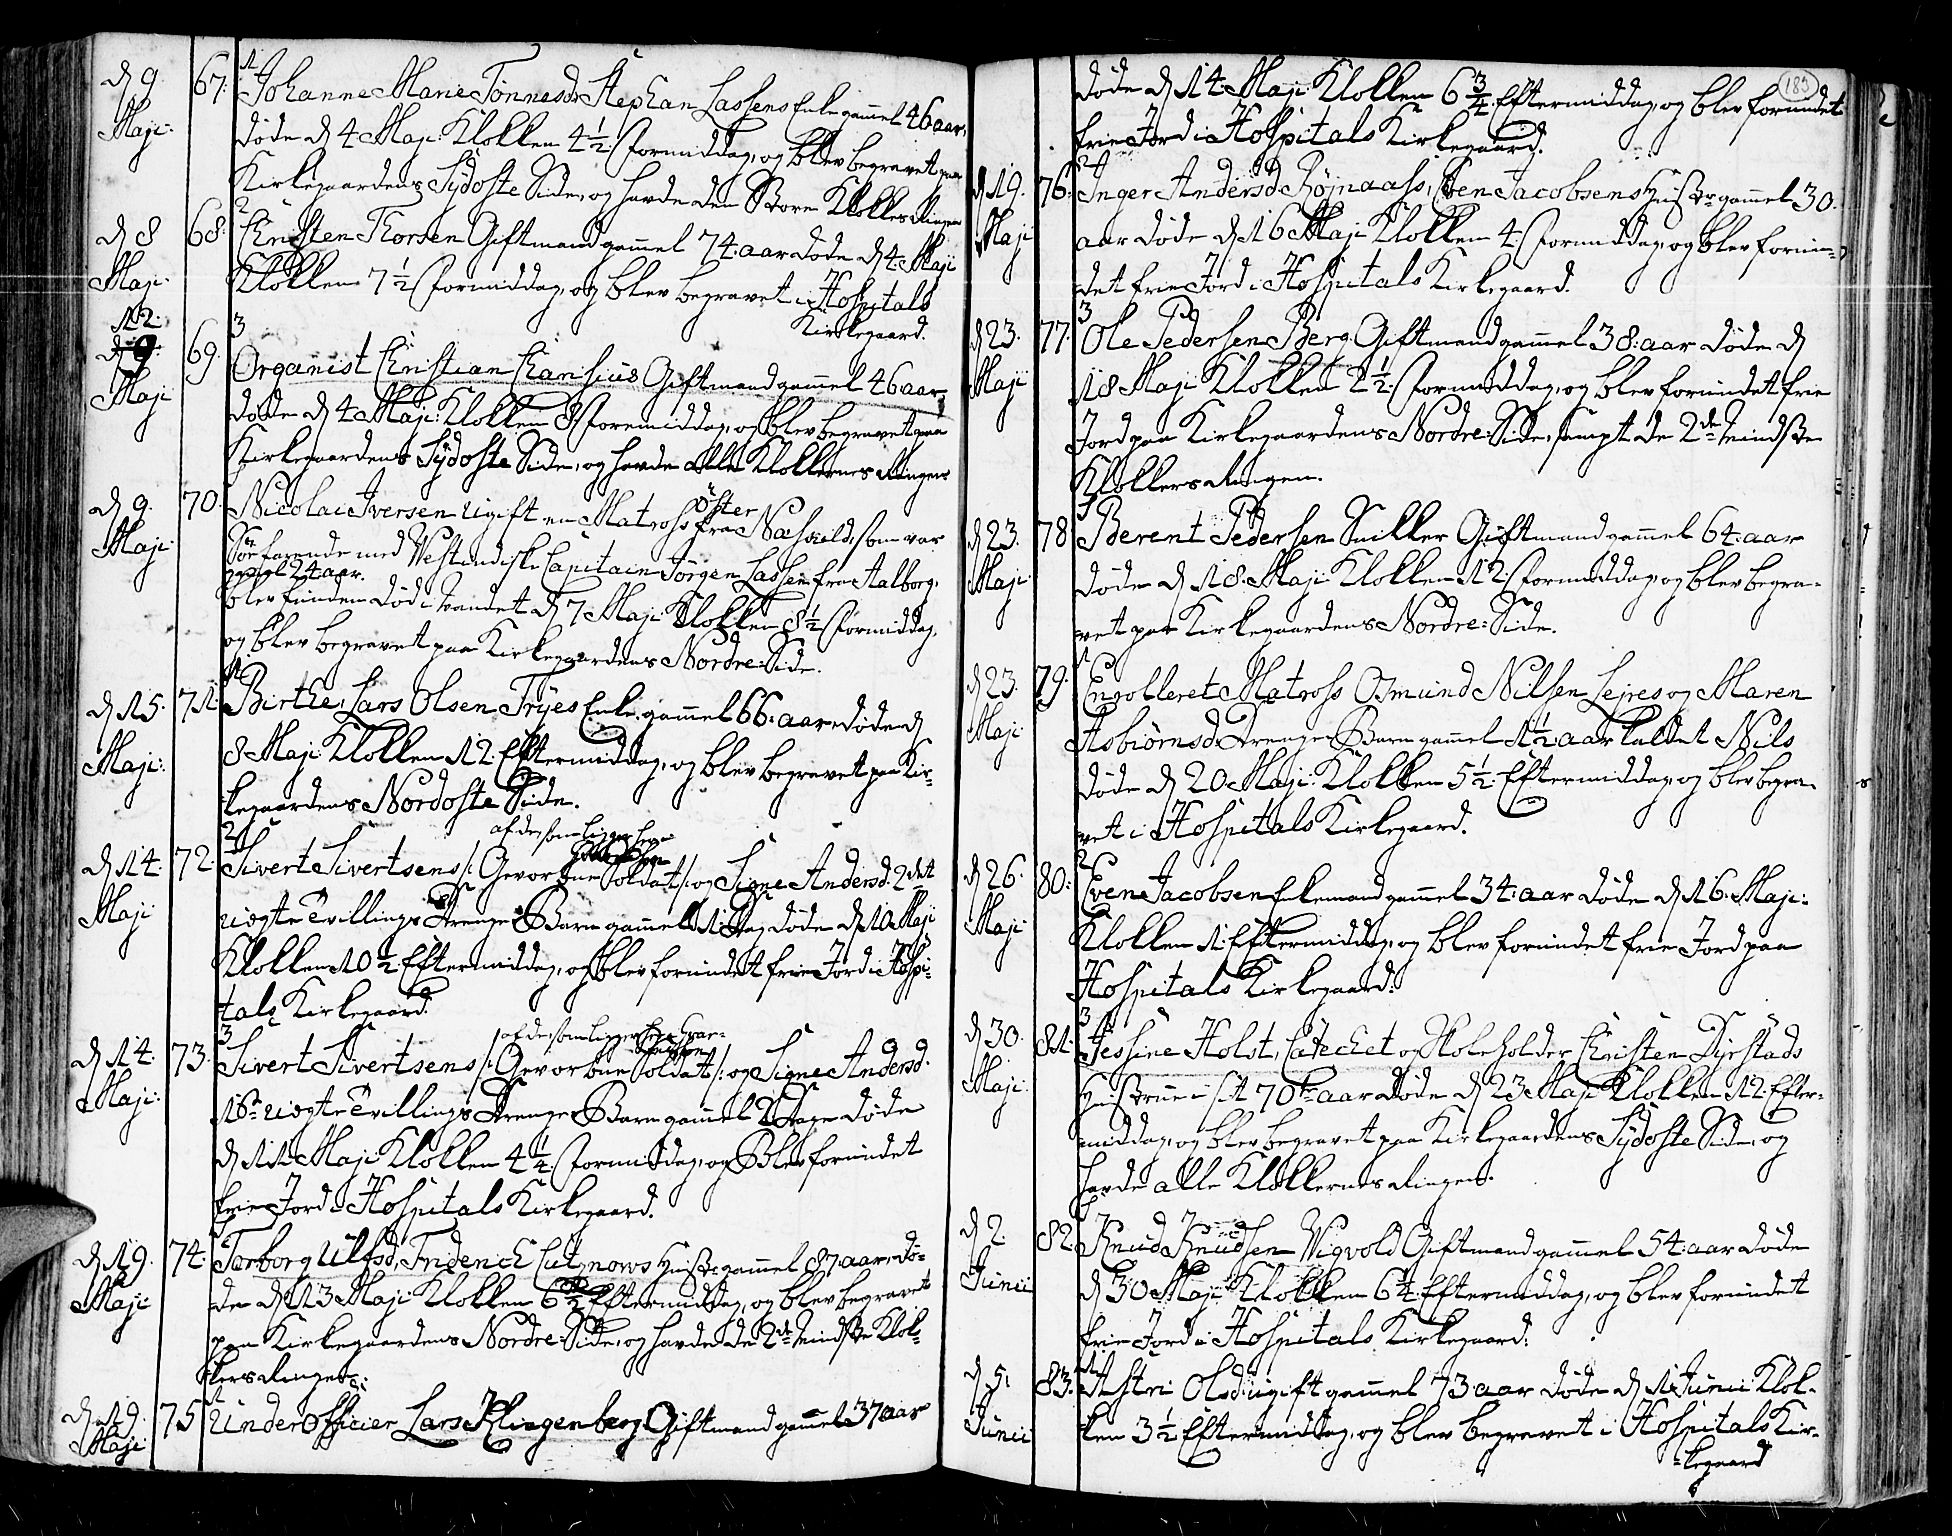 d 9. Maji: 67. Johanne Marie Tönnesdr Stephan Lassens Enke gammel 46 aar,
døde d 4 Maji Klokken 4½ Formiddag, og blev begravet paa
Kirkegaardens Sydoste Side, og havde den Store Klokkes Ringen
d 8 Maji: 68. Christen Thorsen Giftmand gammel 74. aar døde d 4. Maji
Klokken 7½ Formiddag, og blev begravet i Hospitals
Kirkegaard.
12. d 9. Maji 69. Organist Christian Giftmand gammel 46 aar,
døde d 4 Maji: Klokken 8 Foremiddag, og blev begravet paa
Kirkegaardens Sydoste Side, og havde alle Klokkernes Ringen
d 9. Maji 70. Nicolai Iversen ugift en Matross fra Öster Næs som var
farende med Vestindiske Capitain Jörgen Lassen fra Aalborg,
gammel 24 aar.
blev funden død i Vandet d 7 Maji Klokken 8½ Formiddag,
og blev begravet paa Kirkegaardens Nordre Side.
d 15. Maji: 71. Birthe, Lars Olsen Tryes Enke, gammel 66. aar, døde d
8 Maji Klokken 12. Eftermiddag, og blev begravet paa Kir-
kegaardens Nordoste Side.
af de som ligger her
d 14. Maji 72. Sivert Sivertsens /: Gevorbne Soldat /: og Signe Andersd. 2det
uægte Tvillings Drenge Barn gammel 1 Dag døde d 10 Maji
Klokken 10½ Eftermiddag, og blev forundet frie Jord i Hospi-
tals Kirkegaard.
af de som ligger her
d 14. Maji: 73. Sivert Sivertsens /: Gevorbne Soldat /: og Signe Andersd.
uægte Tvillings Drenge Barn gammel 2 Dage døde
d 11 Maji Klokken 4¼ Formiddag, og Blev forundet
frie Jord i Hospitals Kirkegaard.
d 19. Maji 74. Torborg Ulfsd, Friderich Hustr gammel 87 aar, dø-
de d 13 Maji Klokken 6½ Eftermiddag, og blev begravet
paa Kirkegaardens Nordre Side, og havde de 2de Mindste Klok-
kers Ringen.
d 19. Maji 75 Under Officier Lars Klingenberg Giftmand gammel 37 aar
183
døde d 14. Maji Klokken 6¾ Eftermiddag, og blev forundet
frie Jord i Hospitals Kirkegaard.
d 19. Maji 76. Inger Andersd Röjnaass, Even Jacobsens Hustr gammel 30.
aar døde d 16 Maji Klokken 4. Formiddag, og blev forun-
det frie Jord i Hospitals Kirkegaard.
d 23. Maji 77. Ole Pedersen Berg Giftmand gammel 38. aar døde d
18 Maji Klokken 2½ Formiddag, og blev forundet frie
Jord paa Kirkegaardens Nordre Side, sampt de 2de Mindste
Klokkers Ringen.
d 23. Maji 78 Berent Pedersen Sniller Giftmand gammel 64. aar
døde d 18. Maji Klokken 12 Formiddag, og blev begra-
vet paa Kirkegaardens Nordre Side.
d 23. Maji 79. Enrolleret Matross Osmund Nilsen Lejres og Maren
Asbiörnsd Drenge Barn gammel 1½ aar kaldet Nils
døde d 20 Maji: Klokken 5½ Eftermiddag, og blev begra-
vet i Hospitals Kirkegaard.
d 26. Maji 80. Even Jacobsen Enkemand gammel 34. aar døde d 16. Maji:
Klokken 1. Eftermiddag, og blev forundet frie Jord paa
Hospitals Kirkegaard.
d 30. Maji: 81. Jessine Holst, Catechet og Skoleholder Christen Dyrstads
Hustrue i sit 70de aar døde d 23 Maji Klokken 12. Efter-
middag, og blev begravet paa Kirkegaardens Sydoste Side, og
havde alle Klokkernes Ringen.
d 2. Junii 82. Knud Knudsen Vigvold Giftmand gammel 54. aar døde
d 30 Maji Klokken 6¼ Eftermiddag, og blev forundet
frie Jord i Hospitals Kirkegaard.
d 5. Junii 83. Astri Olsd ugift gammel 73 aar døde d 1 Junii Klok-
ken 3½ Eftermiddag, og blev begravet i Hospitals Kir-
kegaard